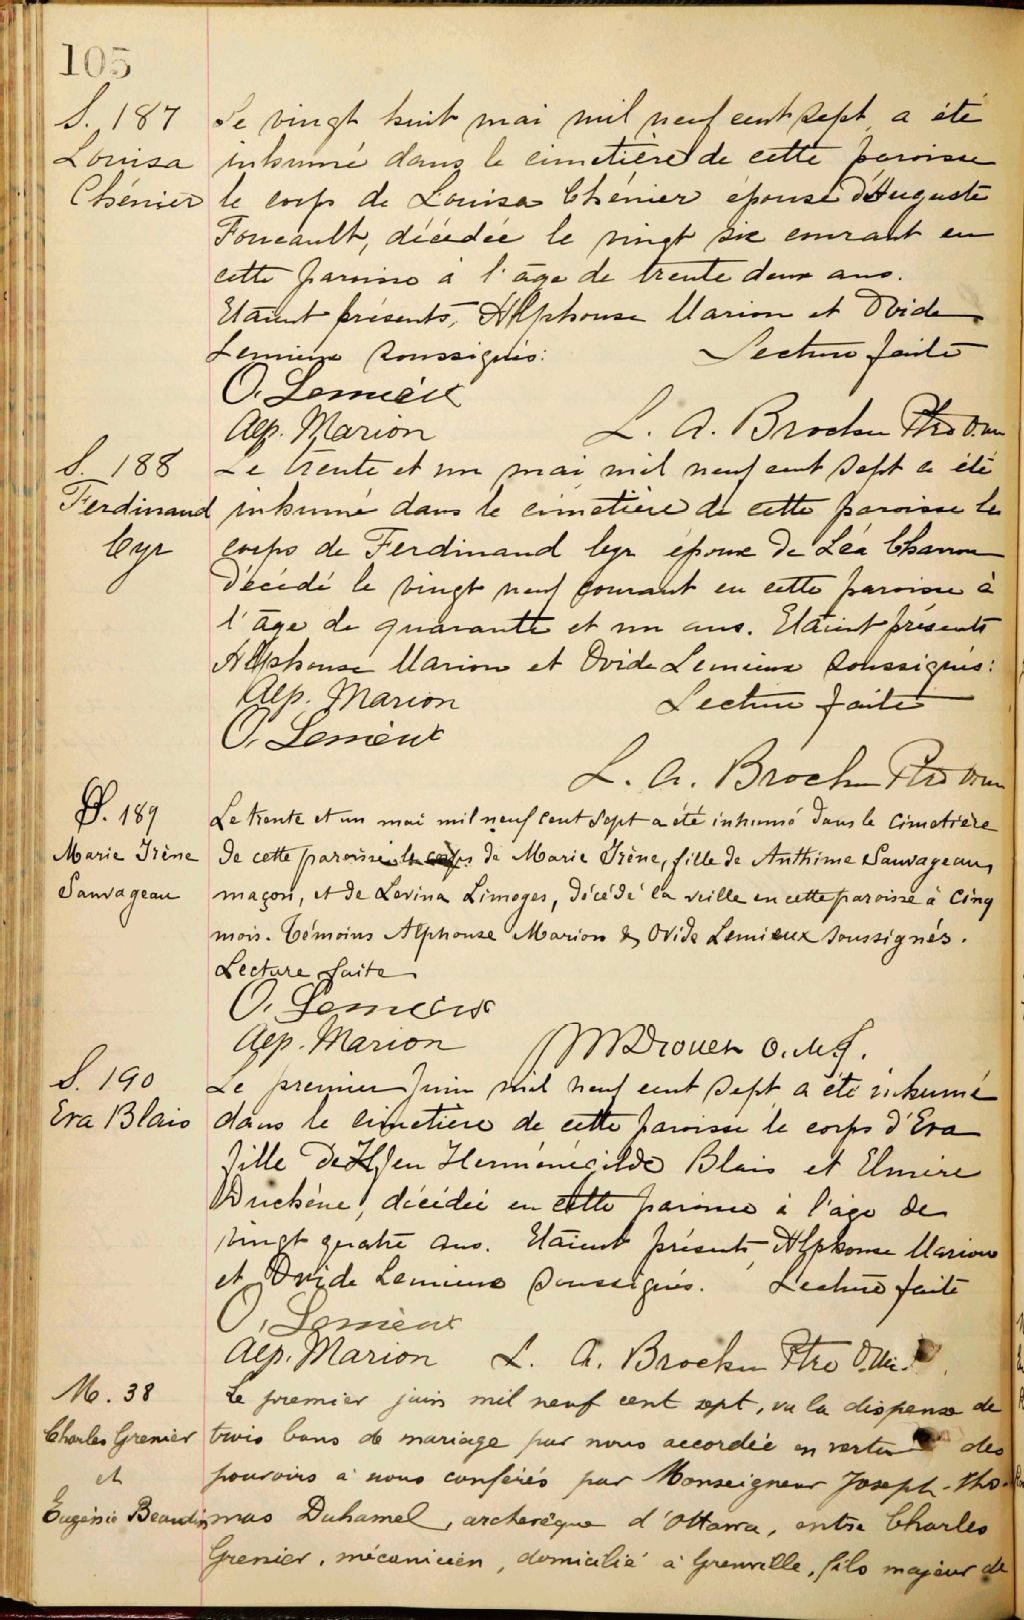 105
S. 187
Louisa
Chénier
Le vingt huit mai mil neuf cent sept, a été
inhumé dans le cimetière de cette paroisse
le corps de Louisa Chénier épouse d'Auguste
Foucault, décédée le vingt six courant en
cette paroisse à l'âge de trente deux ans.
Etaient présents, Alphonse Marion et Ovide
Lemieux soussignés: Lecture faite
O. Lemieux
Alp. Marion L. A. Brochu Ptre O.m.i
S. 188
Ferdinand
Cyr
Le trente et un mai mil neuf cent sept a été
inhumé dans le cimetière de cette paroisse le
corps de Ferdinand Cyr époux de Léa Charron
décédé le vingt neuf courant en cette paroisse à
l'âge de quarante et un ans. Etaient présents
Alphonse Marion et Ovide Lemieux soussignés:
Alp. Marion Lecture faite
O. Lemieux
L. A. Brochu Ptre O.m.i
S. 189
Marie Irène
Sauvageau
Le trente et un mai mil neuf cent sept a été inhumé dans le cimetière
de cette paroisse le corps de Marie Irène, fille de Anthime Sauvageau,
maçon, et de Levina Limoges, décédé la veille en cette paroisse à cinq
mois. Témoins Alphonse Marion & Ovide Lemieux soussignés.
Lecture faite
O. Lemieux
Alp. Marion Drouet O.M.I.
S. 190
Eva Blais
Le premier Juin mil neuf cent sept a été inhumé
dans le cimetière de cette paroisse le corps d'Eva
fille de feu Herménégilde Blais et Elmire
Duchêne, décédée en cette paroisse à l'âge de
vingt quatre ans. Etaient présents Alphonse Marion
et Ovide Lemieux soussignés. Lecture faite
O. Lemieux
Alp. Marion L. A. Brochu Ptre O.M.i.
M. 38
Charles Grenier
et
Eugénie Beaudin
Le premier juin mil neuf cent sept, vu la dispense de
trois bans de mariage par nous accordée en vertu des
pouvoirs à nous conférés par Monseigneur Joseph-Tho-
mas Duhamel, archevêque d'Ottawa, entre Charles
Grenier, mécanicien, domicilié à Grenville, fils majeur de